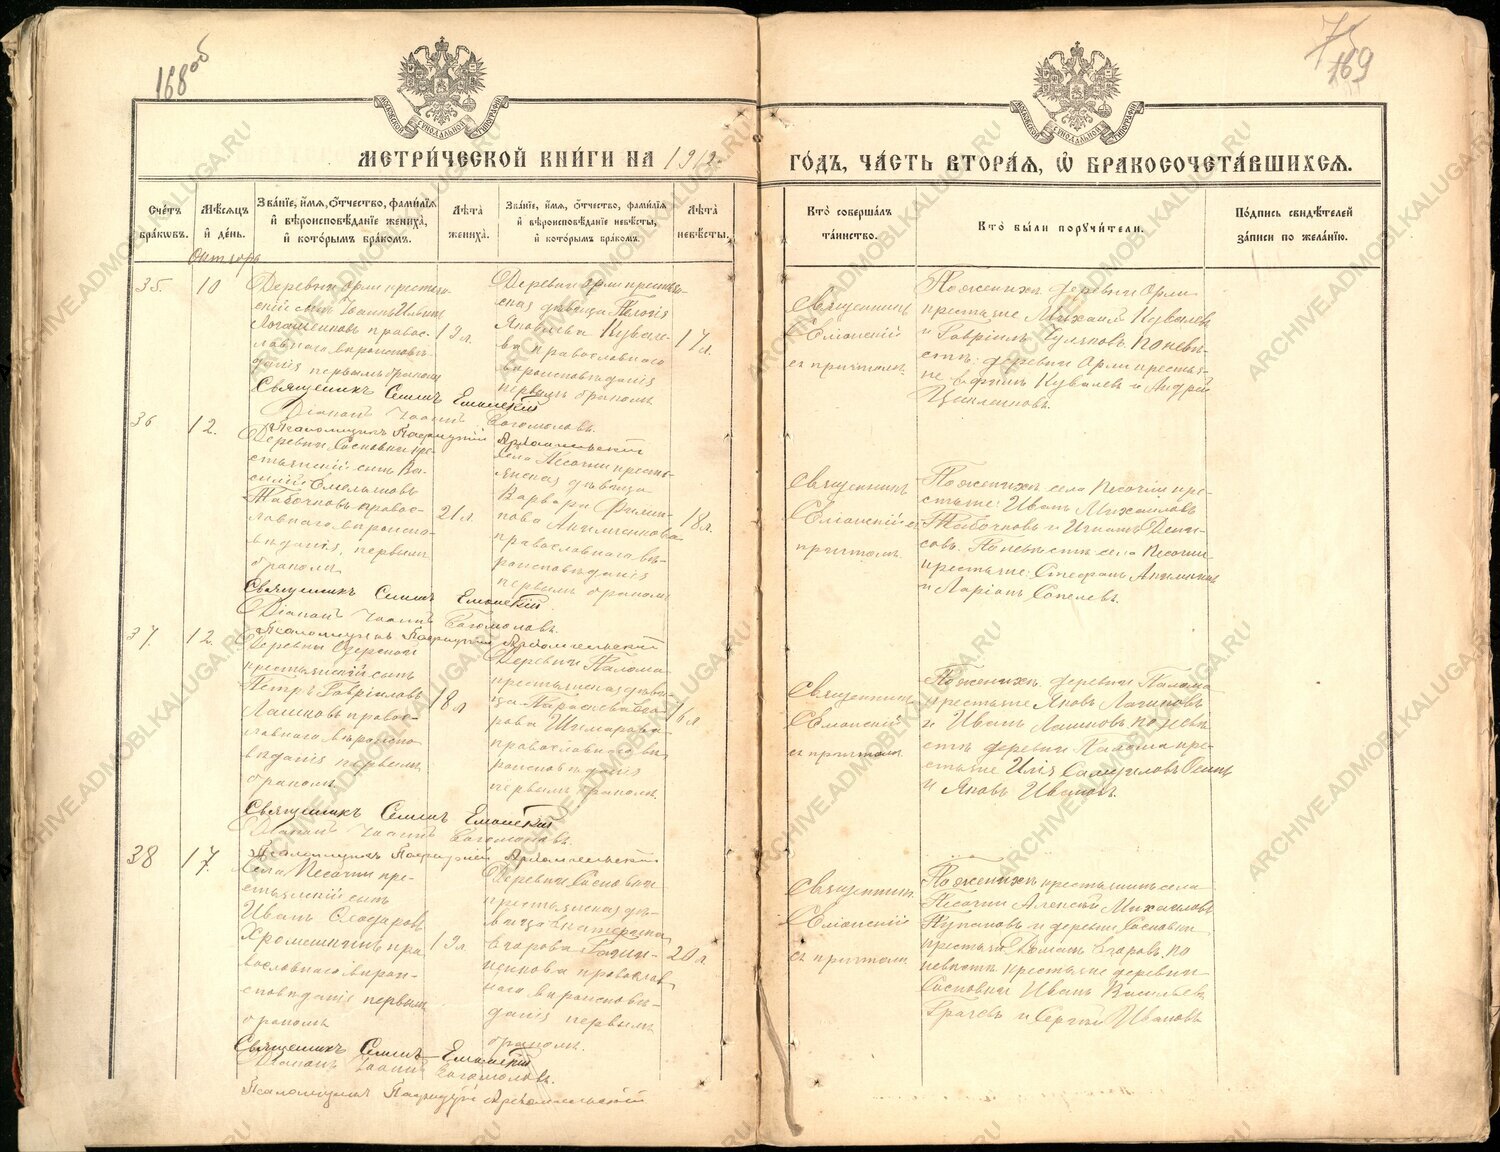 168об
75
169
МОСКОВСКОЙ СѴНОДАЛЬНОЙ ТИПОГРАФІИ
МОСКОВСКОЙ СѴНОДАЛЬНОЙ ТИПОГРАФІИ
МЕТРИ́ЧЕСКОЙ КНИ́ГИ НА 1912
ГО́ДЪ, ЧА́СТЬ ВТОРА́Я, Ѽ БРАКОСОЧЕТА́ВШИХСЯ.
Сче́тъ бра́ковъ.
Мѣ́сяцъ и҆ де́нь.
Зва́нїе, и҆́мя, ѻ҆́тчество, фами́лїя и҆ вѣроисповѣ́данїе жениха̀, и҆ кото́рымъ бра́комъ.
Лѣ́та жениха̀.
Зва́нїе, и҆́мя, ѻ҆́тчество, фами́лїя и҆ вѣроисповѣ́данїе невѣ́сты, и҆ кото́рымъ бра́комъ.
Лѣ́та невѣ́сты.
Кто̀ соверша́лъ та́инство.
Кто̀ бы́ли пор&#ꙋчи́тели.
По́дпись свидѣ́телей за́писи по жела́нїю.
Октябрь
35
10
Деревни Орли крестьян-
скій сынъ Іоаннъ Ильинъ
правос-
лавнаго вѣроисповѣ-
данія первымъ бракомъ
19 л.
Деревни Орли крестьян-
ская дѣвица Пелагія
Яковлева Кувае-
ва православнаго
вѣроисповѣданія
первымъ бракомъ
17 л.
Священникъ
Еланскій
съ причтомъ.
По женихѣ деревни Орли
крестьяне Михаилъ Кувалевъ
и Гавріилъ Чуляковъ. По невѣ-
стѣ: деревни Орли крестья-
не Кувалевъ и Андрей
Священникъ Семенъ Еланскій
Діаконъ Іоаннъ Богомоловъ.
Псаломщикъ Архангельскій
36
12.
Деревни Сосновки кре-
стьянскій сынъ Ва-
силій Емельяновъ
Табочковъ правос-
лавнаго вѣроиспо-
вѣданія, первымъ
бракомъ
21 л.
Села Песочни кресть-
янская дѣвица
Варвара Филип-
пова Анимченкова
православнаго вѣ-
роисповѣданія
первымъ бракомъ
18 л.
Священникъ
Еланскій съ
причтомъ.
По женихѣ села Песочни кре-
стьяне: Иванъ Михаиловъ
Табочковъ и Игнатъ Дени-
совъ. По невѣстѣ села Песочни
крестьяне: Стефанъ
и Ларіонъ
Священникъ Семенъ Еланскій
Діаконъ Іоаннъ Богомоловъ.
Псаломщикъ Архангельскій
37.
12.
Деревни Озерской
крестьянскій сынъ
Петръ Гавріиловъ
Лашковъ правос-
лавнаго вѣроиспо-
вѣданія первымъ
бракомъ.
18 л
Деревни Палома
крестьянская дѣви-
ца Параскева
православнаго вѣ-
роисповѣданія
первымъ бракомъ.
16 л
Священникъ
Еланскій
съ причтомъ
По женихѣ деревни Палома
крестьяне Яковъ Логиновъ
и Иванъ Лашковъ по невѣ-
стѣ деревни Палома кре-
стьяне Илія Самуиловъ
и Яковъ Ивановъ.
Священникъ Семенъ Еланскій
Діаконъ Іоаннъ Богомоловъ.
Псаломщикъ Архангельскій
38
17.
Села Песочни кре-
стьянскій сынъ
Иванъ Ѳеодоровъ
Хромешкинъ пра-
вославнаго вѣроис-
повѣданія первымъ
бракомъ
19 л.
Деревни Сосновки
крестьянская дѣ-
вица Екатерина
Егорова
православ-
наго вѣроисповѣ-
данія первымъ
бракомъ.
20 л.
Священникъ
Еланскій
съ причтомъ
По женихѣ крестьянинъ села
Песочни Алексѣй Михаиловъ
Купановъ и деревни Сосновки
крестьян. Романъ Егоровъ. По
невѣстѣ крестьяне деревни
Сосновки Иванъ Васильевъ
Грачевъ и Сергій Ивановъ
Священникъ Семенъ Еланскій
Діаконъ Іоаннъ Богомоловъ.
Псаломщикъ Архангельскій
ARCHIVE.ADMOBLKALUGA.RU